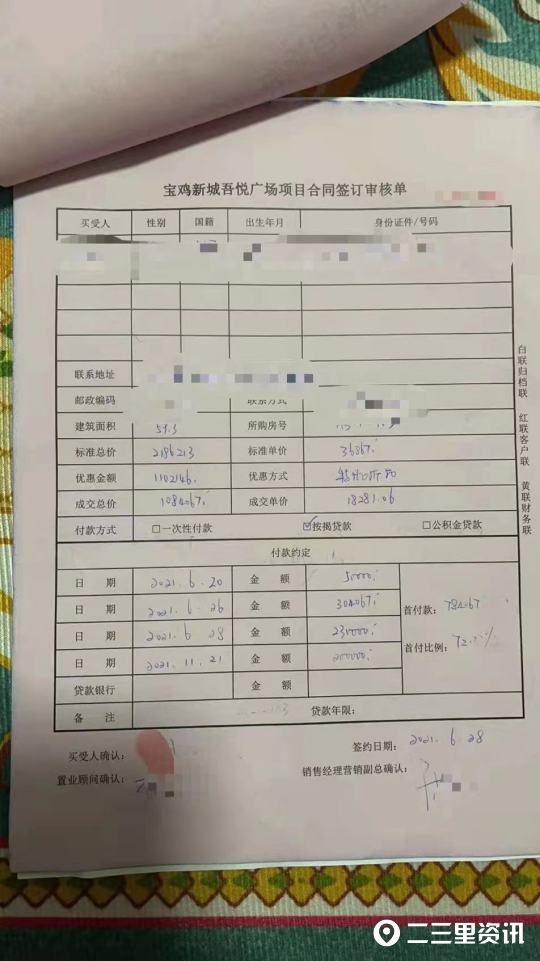 宝鸡新城吾悦广场项目合同签订审核单
买受人 性别 国籍 出生年月 身份证件/号码
联系地址
邮政编码 联系方式
建筑面积 59.3 所购房号
标准总价 2186213 标准单价 36867
优惠金额 1102146 优惠方式
成交总价 1084067 成交单价 18281.06
付款方式 □一次性付款 ☑按揭贷款 □公积金贷款
付款约定
日 期 2021.6.20 金 额 50000
日 期 2021.6.26 金 额 304067
日 期 2021.6 28 金 额 230000
日 期 2021.11.21 金 额 200000
首付款: 784067
首付比例: 72
贷款银行 金 额
备 注 贷款年限:
买受人确认: 签约日期: 2021.6.28
置业顾问确认: 销售经理营销副总确认:
白联归档联 红联客户联 黄联财务联
二三里资讯